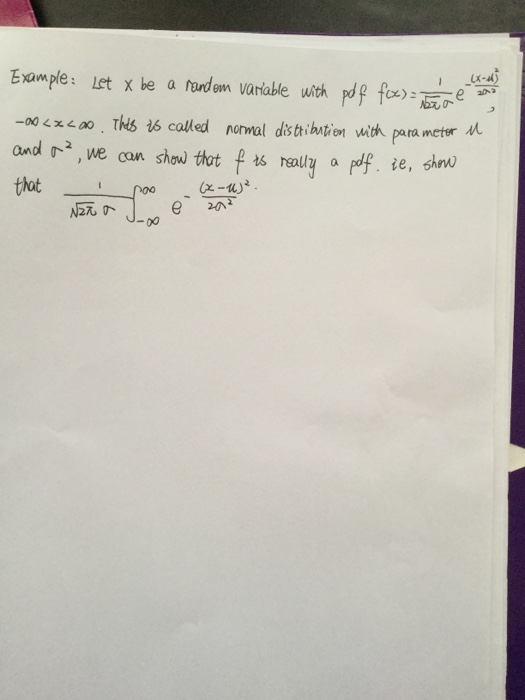 Example: Let x be a random variable with pdf f(x) = 1/(√2π σ) e^(-(x-u)²/(2σ²)),
-∞ < x < ∞. This is called normal distribution with parameter u
and σ², we can show that f is really a pdf. ie, show
that 1/(√2π σ) ∫_{-∞}^{∞} e^(-(x-u)²/(2σ²)).